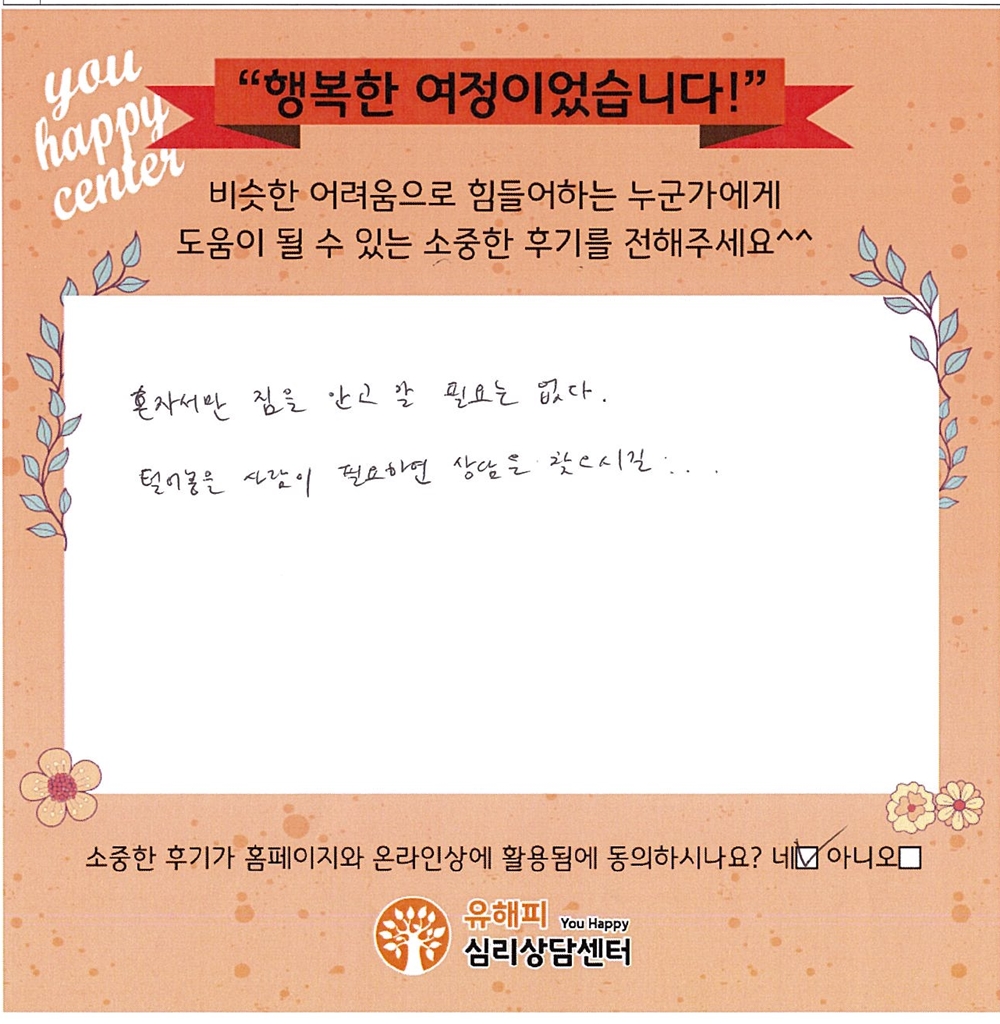 you
happy
center
“행복한 여정이었습니다!”
비슷한 어려움으로 힘들어하는 누군가에게
도움이 될 수 있는 소중한 후기를 전해주세요^^
혼자서만 짐을 안고 갈 필요는 없다.
털어놓을 사람이 필요하면 상담을 찾으시길...
소중한 후기가 홈페이지와 온라인상에 활용됨에 동의하시나요? 네☑ 아니오☐
유해피 You Happy
심리상담센터